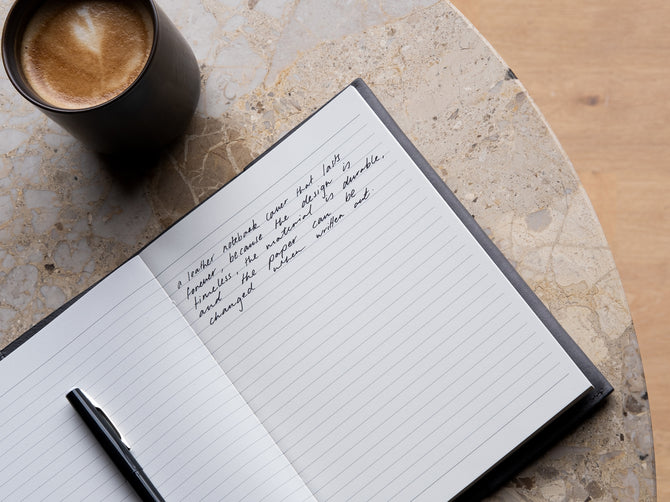 a leather notebook cover that lasts
forever, because the design is
timeless, the material is durable,
and the paper can be
changed when written out.